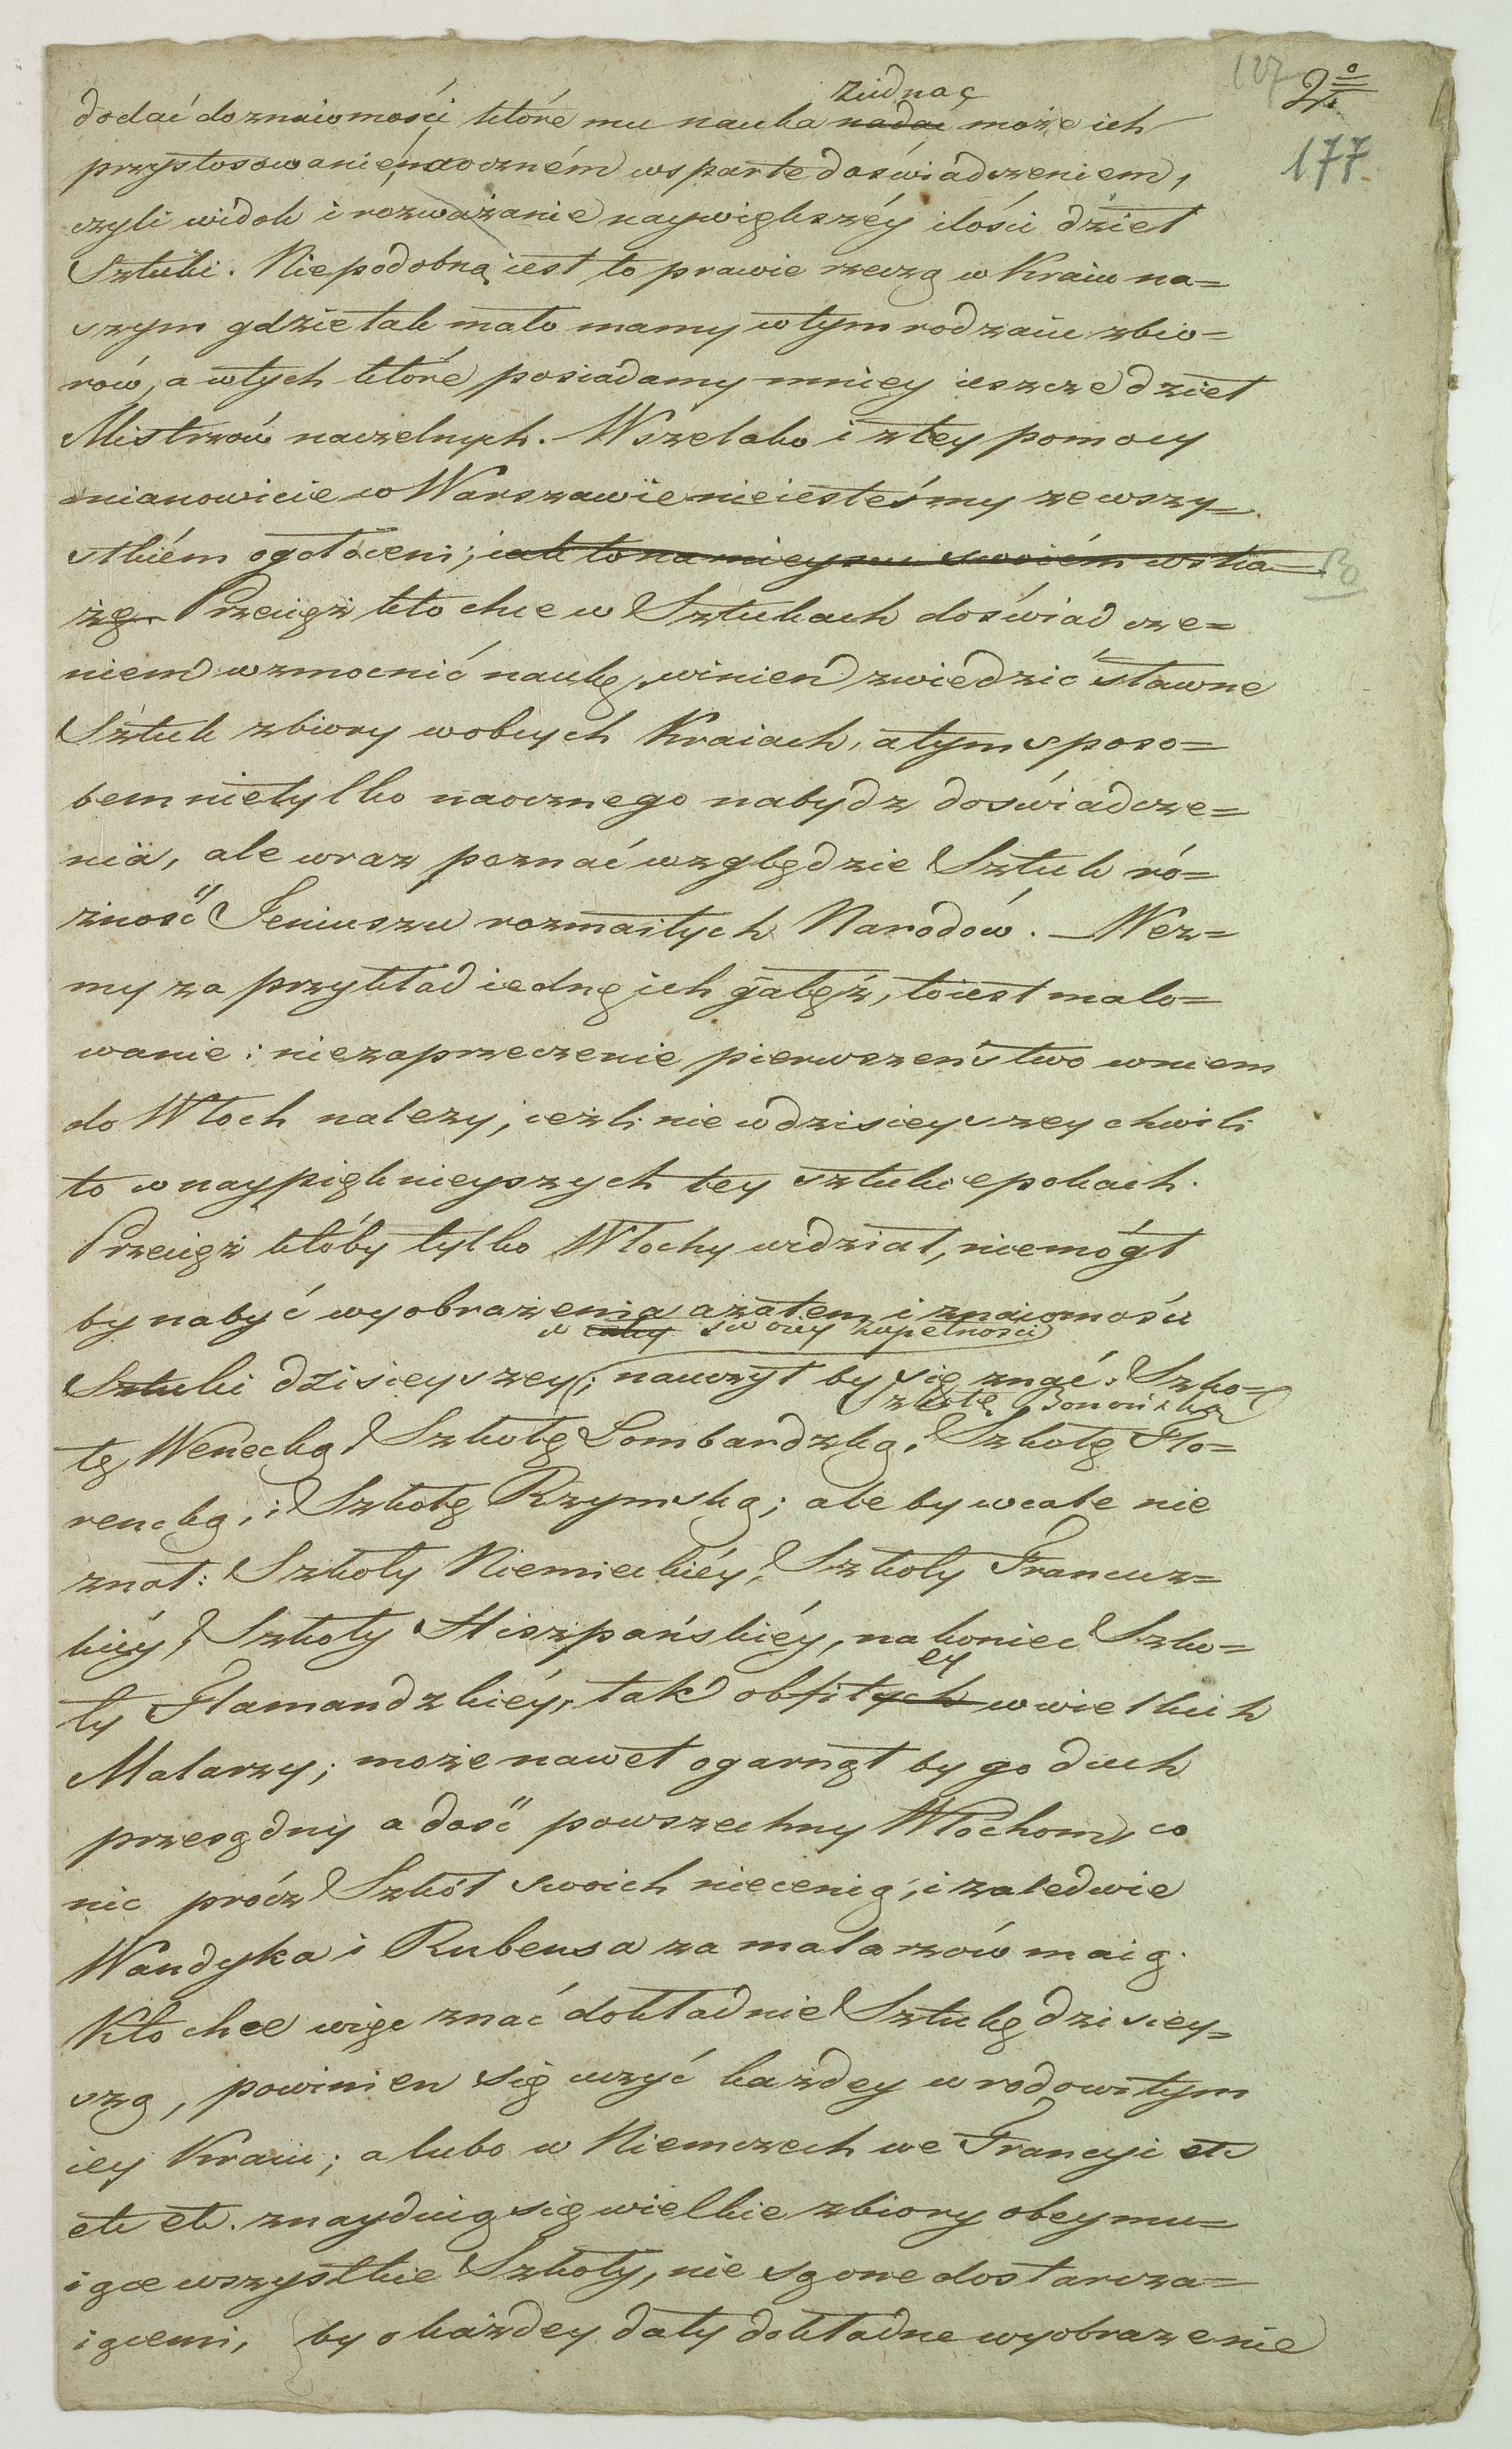 127
2o
177.
ziednać
dodać do znaiomości, które mu nauka nadać może ich
przystosowanie, naoczném wsparte doświadczeniem,
czyli widok i rozważanie naywiększéy ilości dzieł
Sztuki. Niepodobną iest to prawie rzeczą w Kraiu na=
szym gdzie tak mało mamy w tym rodzaiu zbio=
rów, a w tych które posiadamy mniey ieszcze dzieł
Mistrzów naczelnych. Wszelako i z tey pomocy
mianowicie w Warszawie nie iesteśmy ze wszy=
stkiém ogołoceni; iak to na mieyscu swoiém wska=
żę. Przeciąż kto chce w Sztukach doświadcze=
niem wzmocnić naukę, winien zwiedzić sławne
Sztuk zbiory w obcych Kraiach, a tym sposo=
bem nietylko naocznego nabydz doświadcze=
nia, ale wraz poznać względzie Sztuk ró=
żność Jeniuszu rozmaitych Narodów. — Weź=
my za przykład iednę ich gałęź, to iest malo=
wanie: niezaprzeczenie pierwszeństwo w niem
do Włoch należy, ieżli nie w dzisieyszey chwili
to w naypiękniejszych tey sztuki epokach.
Przeciąż któby tylko Włochy widział, niemógł
by nabyć wyobrażenia a zatem i znaiomości
w całey swoiey zupełności
Sztuki dzisieyszey; nauczył by się znać: Szko=
Szkołę Bonońską
łę Wenecką, Szkołę Lombardzką, Szkołę Flo=
rencką, i Szkołę Rzymską; ale by wcale nie
znał: Szkoły Niemieckiéy, Szkoły Francuz=
kiéy, Szkoły Hiszpańskiéy, nakoniec Szko=
ey
ły Flamandzkiéy, tak obfitych w wielkich
Malarzy; może nawet ogarnął by go duch
przesądny a dość powszechny Włochom, co
nic prócz Szkół swoich niecenią, i zaledwie
Wandyka i Rubensa za malarzów maią.
Kto chce więc znać dokładnie Sztukę dzisiey=
szą, powinien się uczyć każdey w rodowitym
iey Kraiu; a lubo w Niemczech we Francyi etc
etc etc. znayduią się wielkie zbiory obeymu=
iące wszystkie Szkoły, nie są one dostarcza=
iącemi, by o każdey dały dokładne wyobrażenie